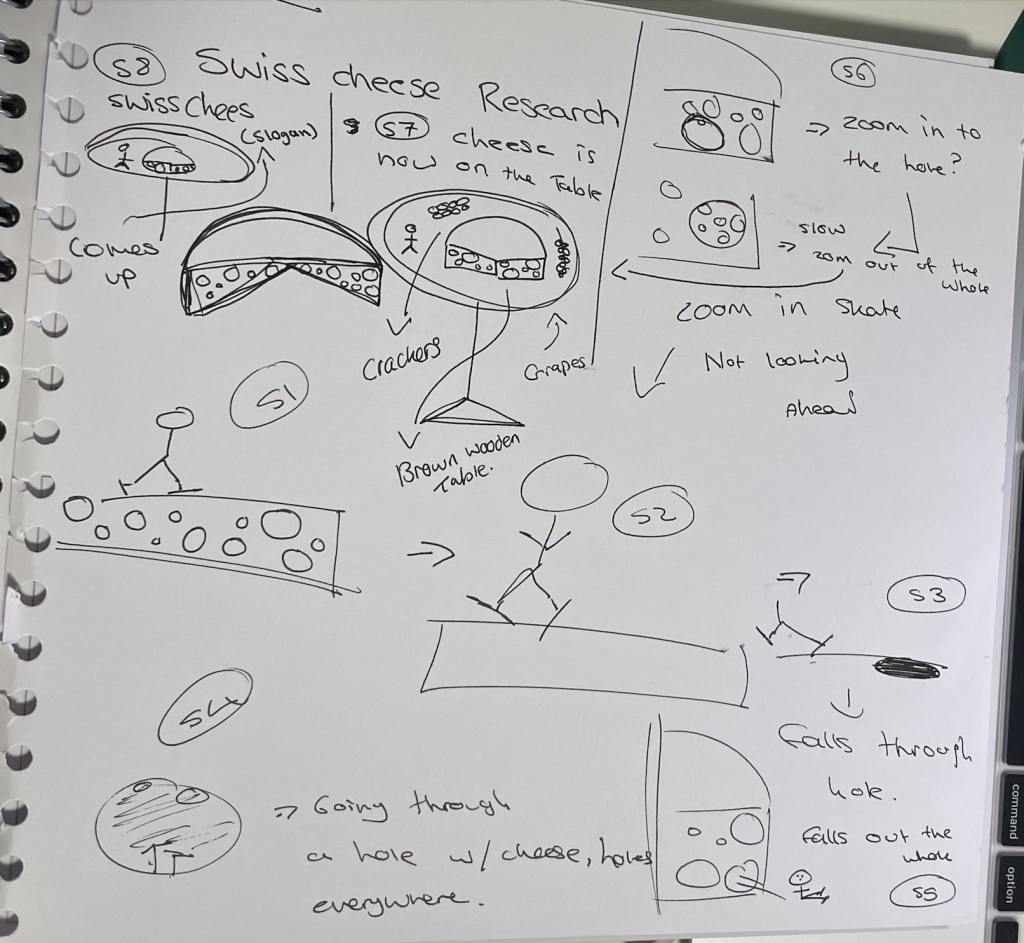 S8 Swiss cheese Research
swiss chees
(slogan)
comes
up
S7 cheese is
now on the Table
Crackers
Grapes
Brown wooden
Table.
S6
⇒ zoom in to
the hole?
⇒ slow
zoom out of the
whole
zoom in skate
Not looking
Ahead
S1
⇒
S2
⇒
S3
Falls through
hole.
Falls out the
whole
S5
S4
⇒ Going through
a hole w/ cheese, holes
everywhere.
command
option